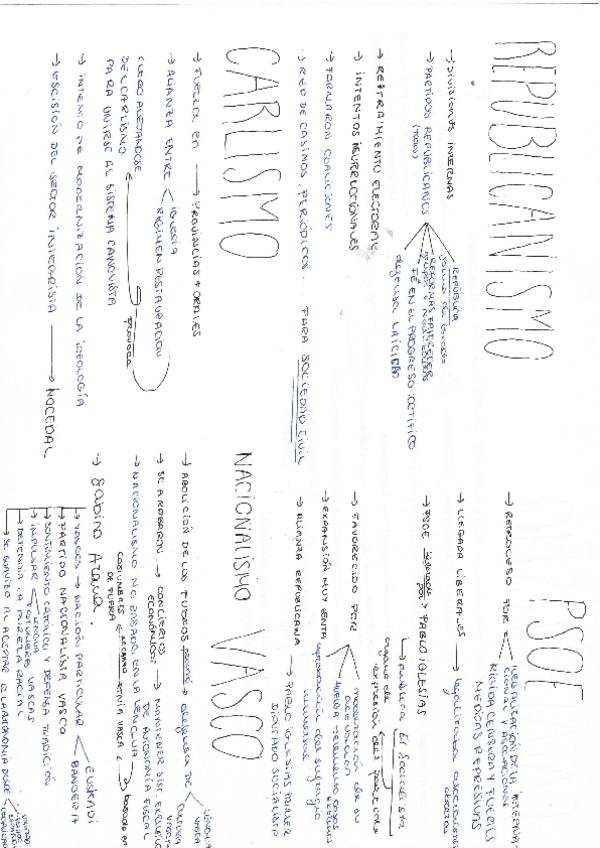 REPUBLICANISMO
→ DIVISIONES INTERNAS
→ PARTIDOS REPUBLICANOS
(TODOS)
REPÚBLICA
FÉ EN EL PROGRESO CIENTÍFICO
defensa LAICIDAD
→ RETRAIMIENTO ELECTORAL
→ INTENTOS INSURRECCIONALES
→ FORMARON COALICIONES
→ RED DE CASINOS, PERIÓDICOS. PARA SOCIEDAD CIVIL
CARLISMO
→ FUERZA en → PROVINCIAS + ORALES
→ ALIANZA ENTRE < iglesia
RÉGIMEN RESTAURACIÓN
LUEGO ALEJANDOSE
DEL CARLISMO
PARA UNIRSE AL SISTEMA CANOVISTA
provoca
→ INTENTO DE MODERNIZACIÓN DE LA IDEOLOGÍA
→ ESCISIÓN DEL SECTOR INTEGRISTA → NOCEDAL
PSOE
→ RETROCESO POR
ILEGALIZACIÓN DE LA INTERNA-
CIONAL Y ASOCIACIONES
RÍGIDA CENSURA Y FUERTES
MEDIDAS REPRESIVAS
→ LLEGADA LIBERALES → legalizados asociaciones
obreras
→ PSOE legalizado por PABLO IGLESIAS
→ publica El Socialista
órgano de expresión del partido
→ FAVORECIDO POR
moderación de su
→ EXPANSIÓN MUY LENTA
aprobación del sufragio
universal
→ ALIANZA REPUBLICANA → PABLO IGLESIAS PRIMER
DIPUTADO SOCIALISTA
NACIONALISMO VASCO
→ ABOLICIÓN DE LOS FUEROS provocó → defensa DE
LENGUA
VASCA
→ SE APROBARON → CONCIERTOS
ECONÓMICOS → MANTENER SIST. EXCLUSIVO
DE AUTONOMÍA FISCAL
→ NACIONALISMO NO BASADO EN LA LENGUA
COSTUMBRES
ETNIA VASCA
basado en
→ Sabino Arana.
→ VASCOS → NACIÓN PARTICULAR < EUSKADI
BANDERA
→ PARTIDO NACIONALISTA VASCO
→ SENTIMIENTO CATÓLICO Y DEFENSA TRADICIÓN
→ IMPULSAR < LENGUA
COSTUMBRES VASCAS
→ DEFENDÍA LA PUREZA RACIAL
→ SE SUAVIZÓ AL ACEPTAR LA AUTONOMÍA DENTRO